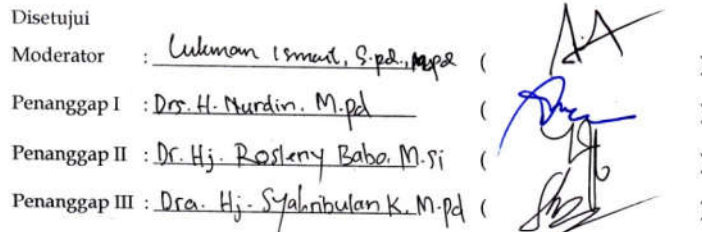 Disetujui
Moderator : Lukman Ismail, S.pd., M.pd ( )
Penanggap I : Drs. H. Nurdin. M.pd ( )
Penanggap II : Dr. Hj. Rosleny Babo. M.si ( )
Penanggap III : Dra. Hj. Syahribulan K. M.pd ( )